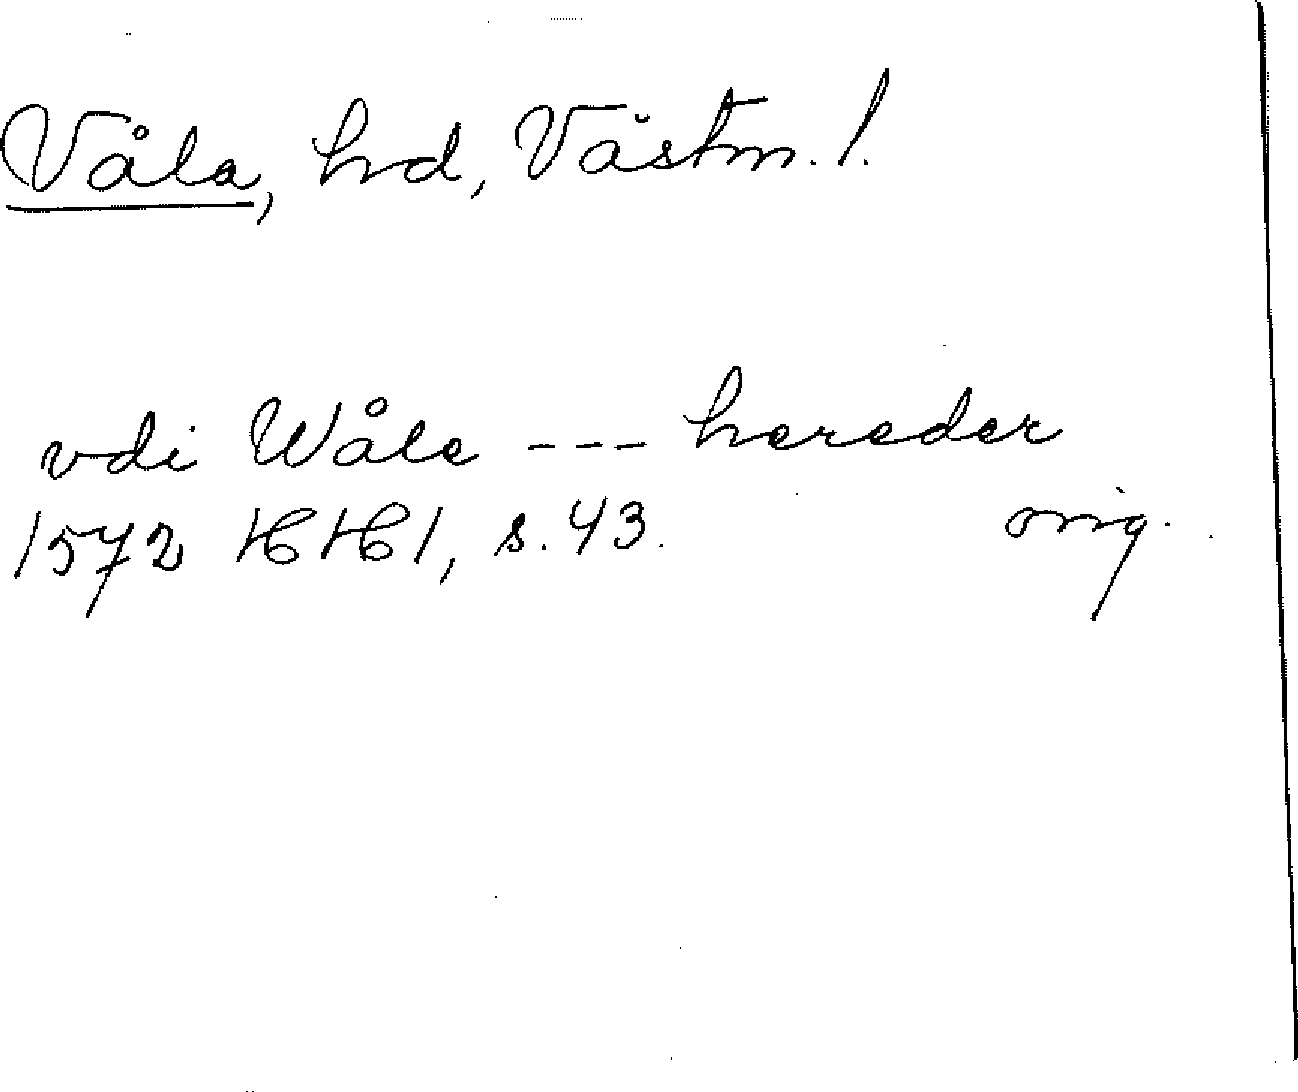 Våla, hd, Västm. l.
vdi Wåle --- hereder
1572 HH 1, s. 43. orig.